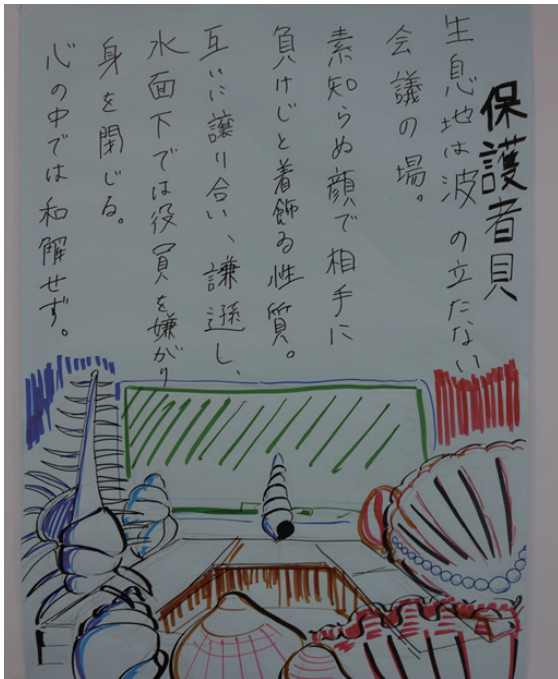 保護者貝
生息地は波の立たない
会議の場。
素知らぬ顔で相手に
負けじと着飾る性質。
互いに譲り合い、謙遜し、
水面下では役員を嫌がり
身を閉じる。
心の中では和解せず。